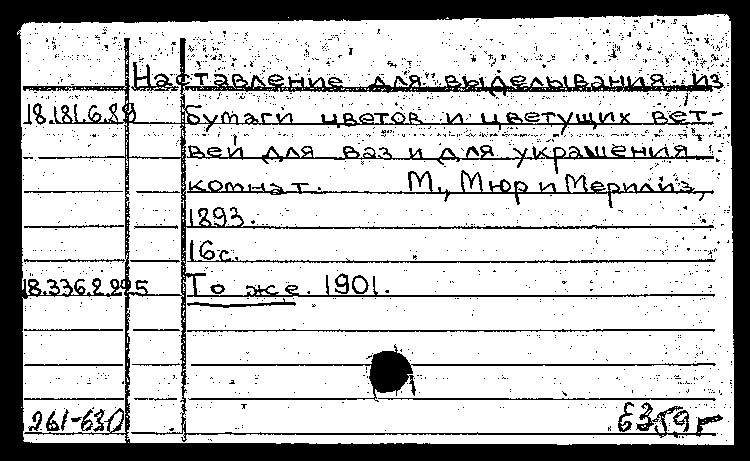 Наставление для выделывания из
18.181.6.89 бумаги цветов и цветущих вет-
вей для ваз и для украшения
комнат. М., Мюр и Мерилиз,
1893.
16с.
18.336.2.225 То же. 1901.
261-630